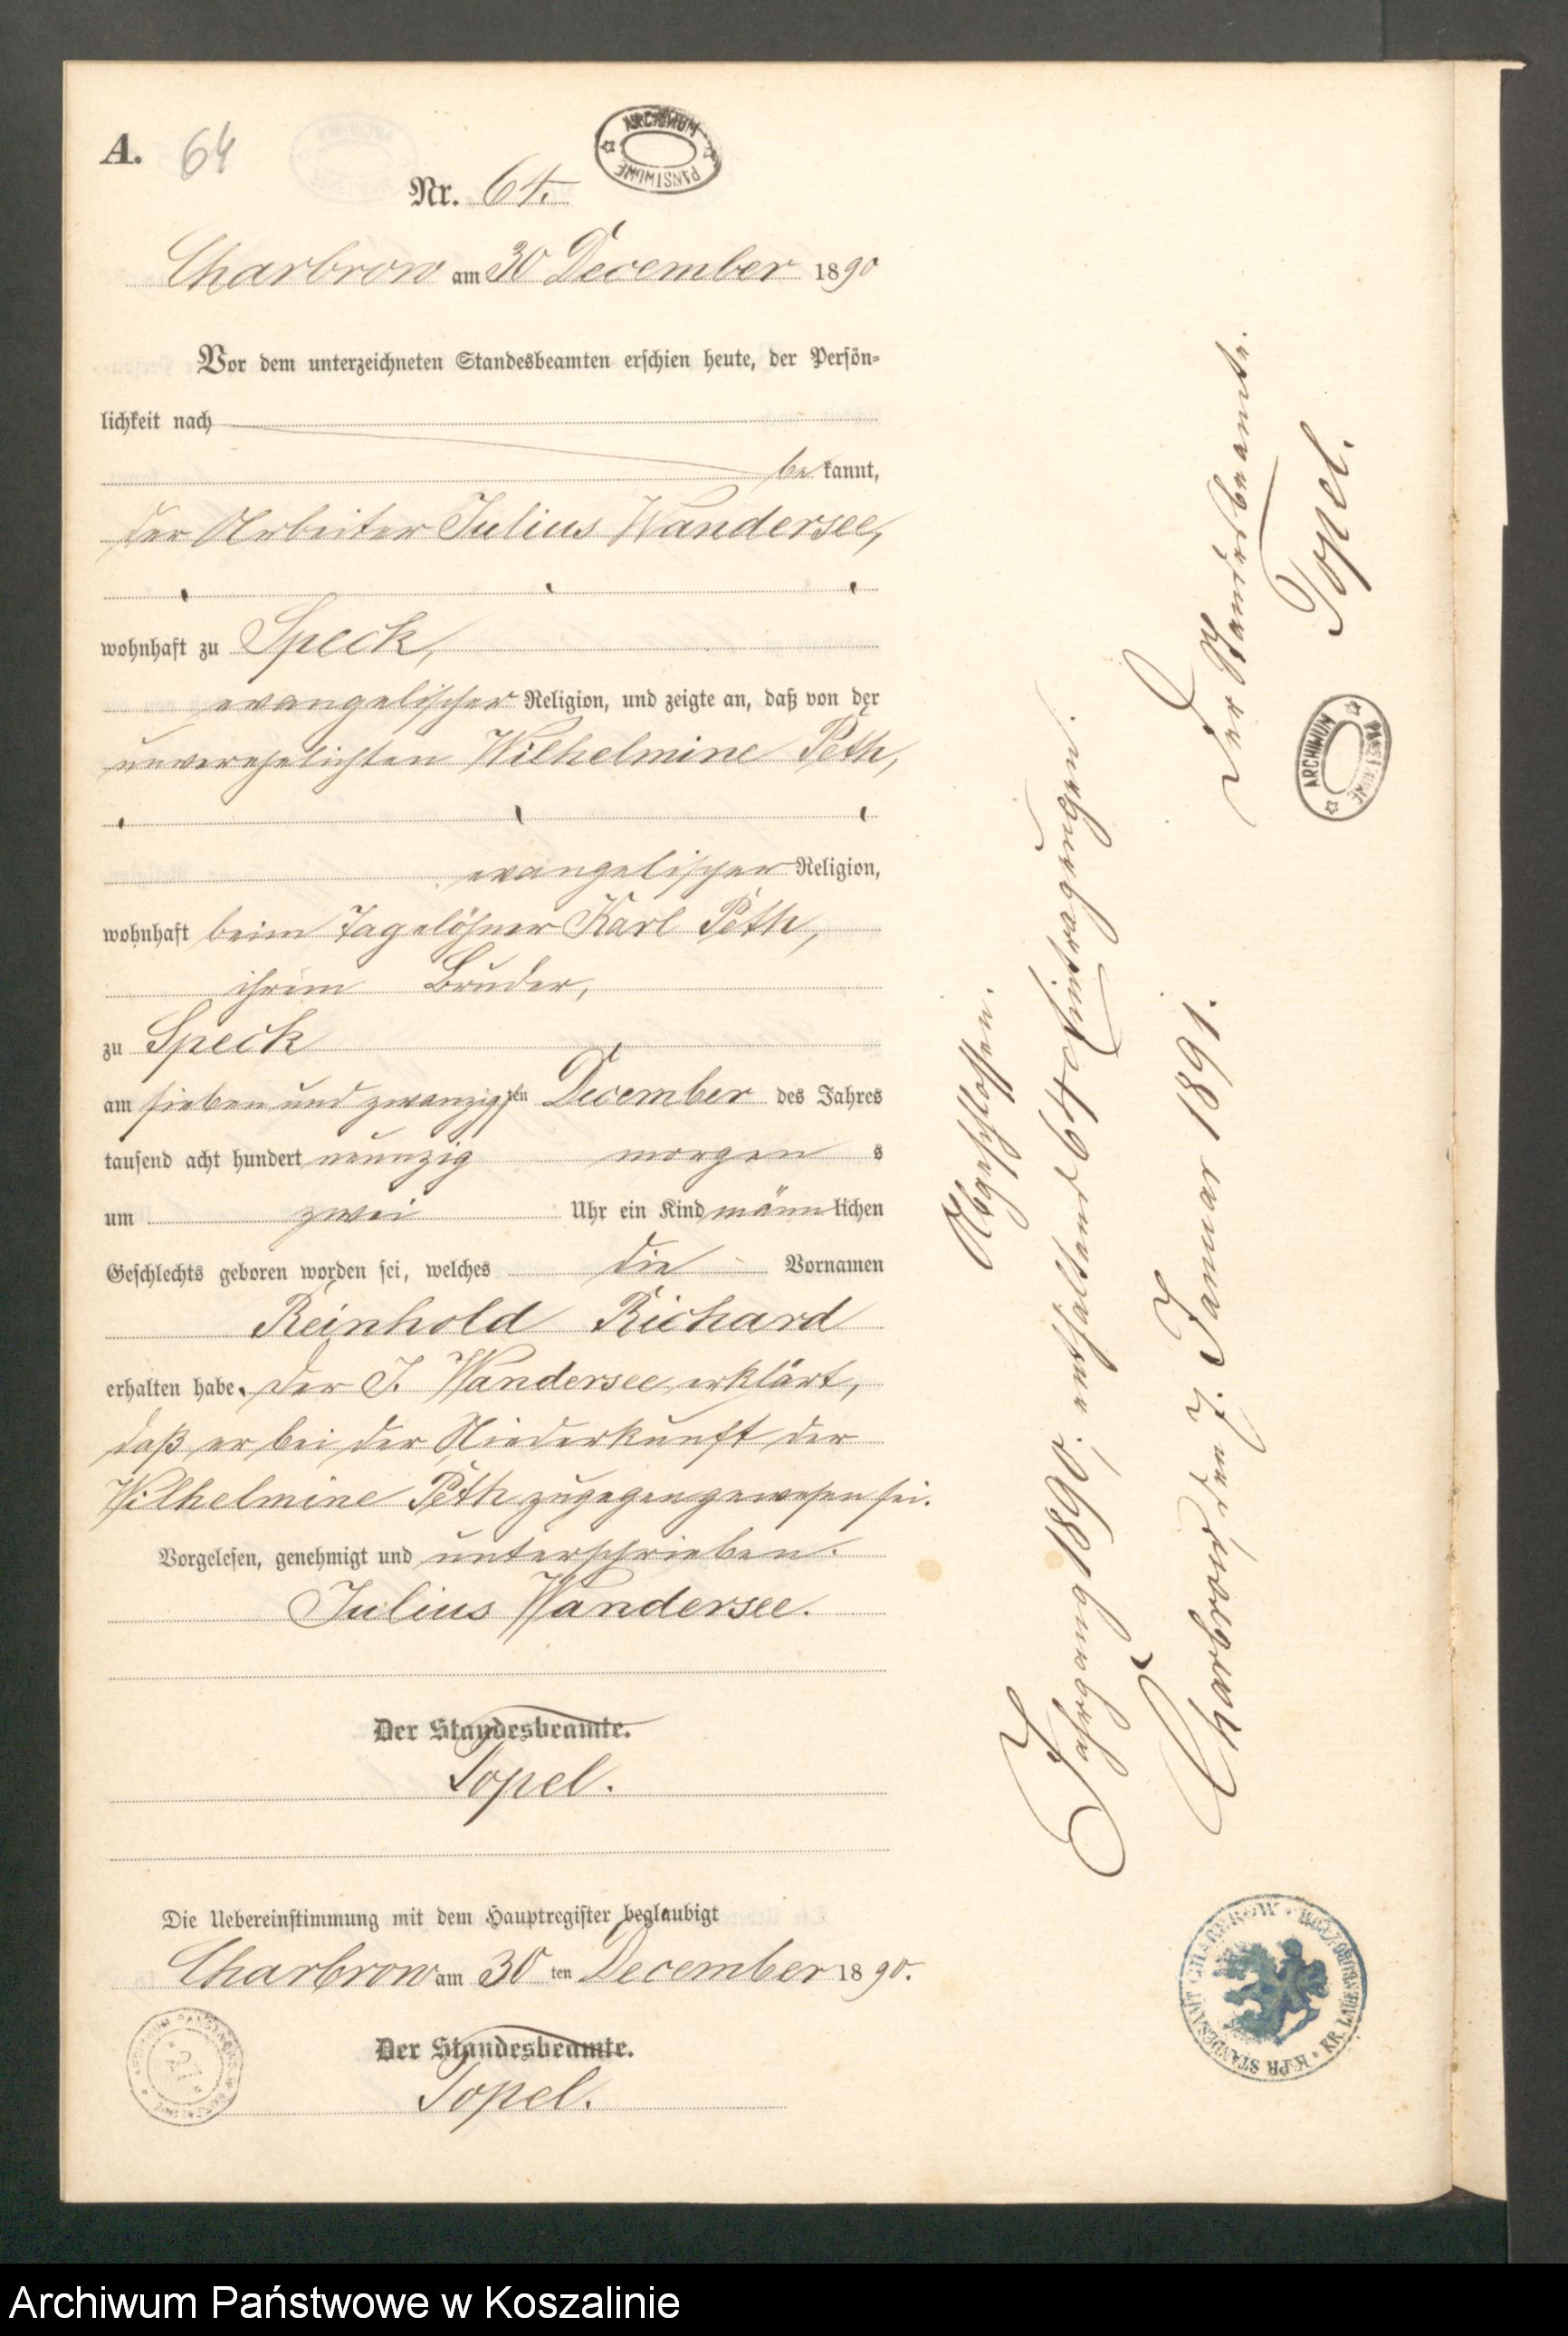 A. 64
ARCHIWUM PAŃSTWOWE
Nr. 64.
Charbrow am 30 December 1890
Vor dem unterzeichneten Standesbeamten erschien heute, der Persön-
lichkeit nach
be kannt,
der Arbeiter Julius Wandersee,
wohnhaft zu Speck,
evangelischer Religion, und zeigte an, daß von der
unverehelichten Wilhelmine Peth,
evangelischer Religion,
wohnhaft beim Tagelöhner Karl Peth,
ihrem Bruder,
zu Speck
am sieben und zwanzigsten December des Jahres
tausend acht hundert neunzig morgen s
um zwei Uhr ein Kind männlichen
Geschlechts geboren worden sei, welches die Vornamen
Reinhold Richard
erhalten habe. Der J. Wandersee erklärt,
daß er bei der Niederkunft der
Wilhelmine Peth zugegen gewesen sei.
Vorgelesen, genehmigt und unterschrieben.
Julius Wandersee.
Der Standesbeamte.
Topel.
Die Uebereinstimmung mit dem Hauptregister beglaubigt
Charbrow am 30 ten December 1890.
Der Standesbeamte.
Topel.
Abgeschlossen.
Jahrgang 1890, enthaltend 64 Eintragungen.
Charbrow, den 7. Januar 1891.
Der Standesbeamte.
Topel.
ARCHIWUM PAŃSTWOWE
K. PR. STANDESAMT CHARBROW KR. LAUENBURG
27
Archiwum Państwowe w Koszalinie